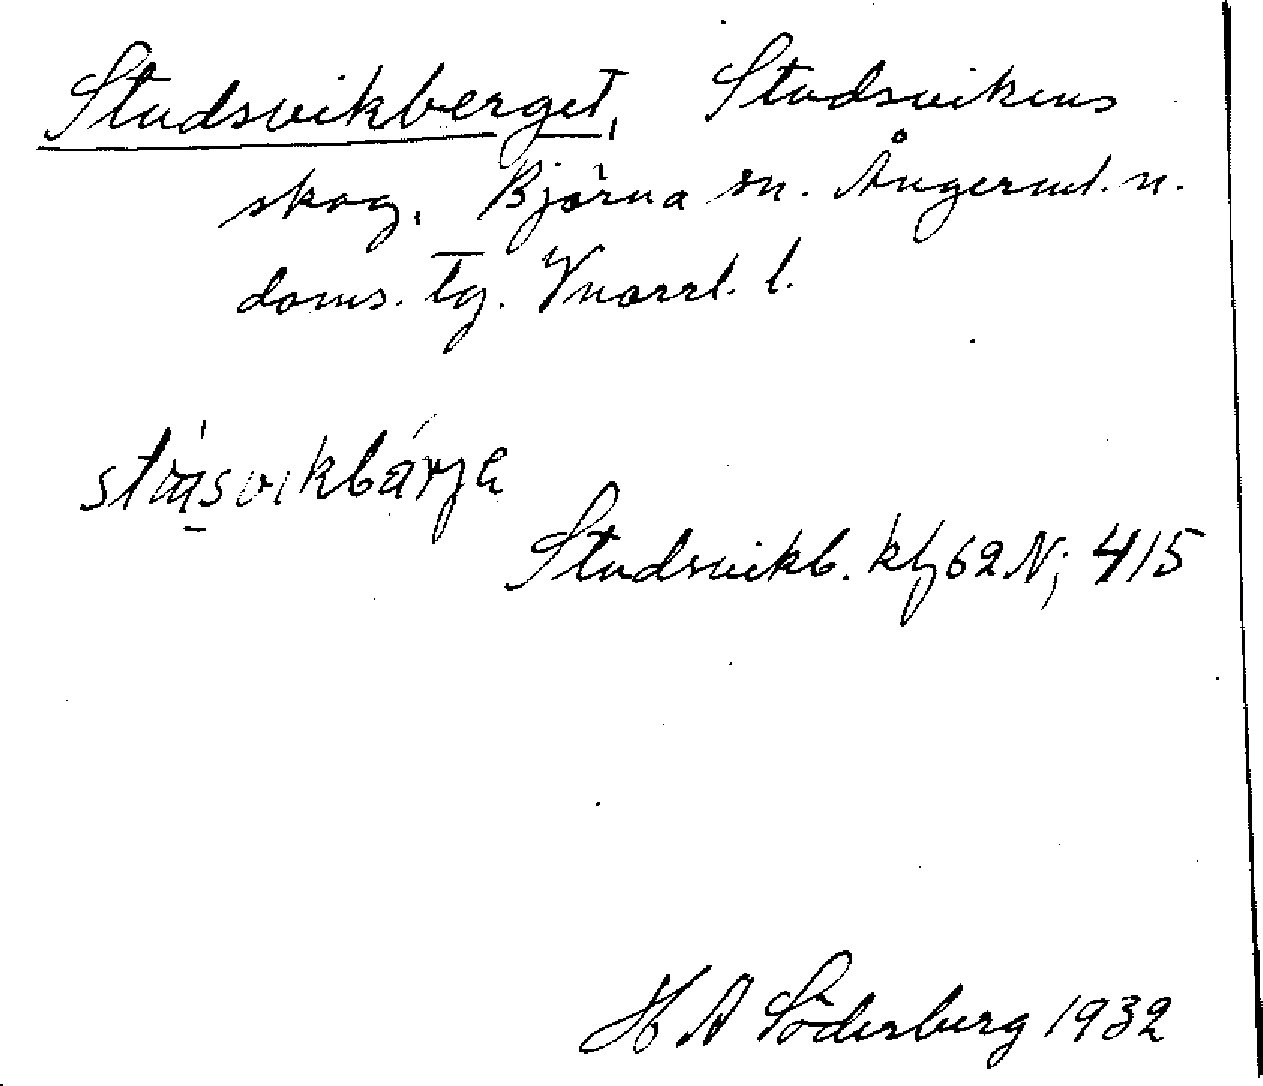 Studsvikberget, Studsvikens
skog, Björna sn. Ångerml. n.
doms. tg. Vnorrl. l.
Studsvikb. kbl 62 N; 415
H A Söderberg 1932